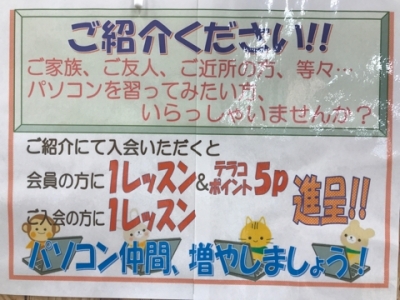 ご紹介ください!!
ご家族、ご友人、ご近所の方、等々…
パソコンを習ってみたい方、
いらっしゃいませんか？
ご紹介にて入会いただくと
会員の方に1レッスン&テラコポイント5p
ご入会の方に1レッスン
進呈!!
パソコン仲間、増やしましょう！